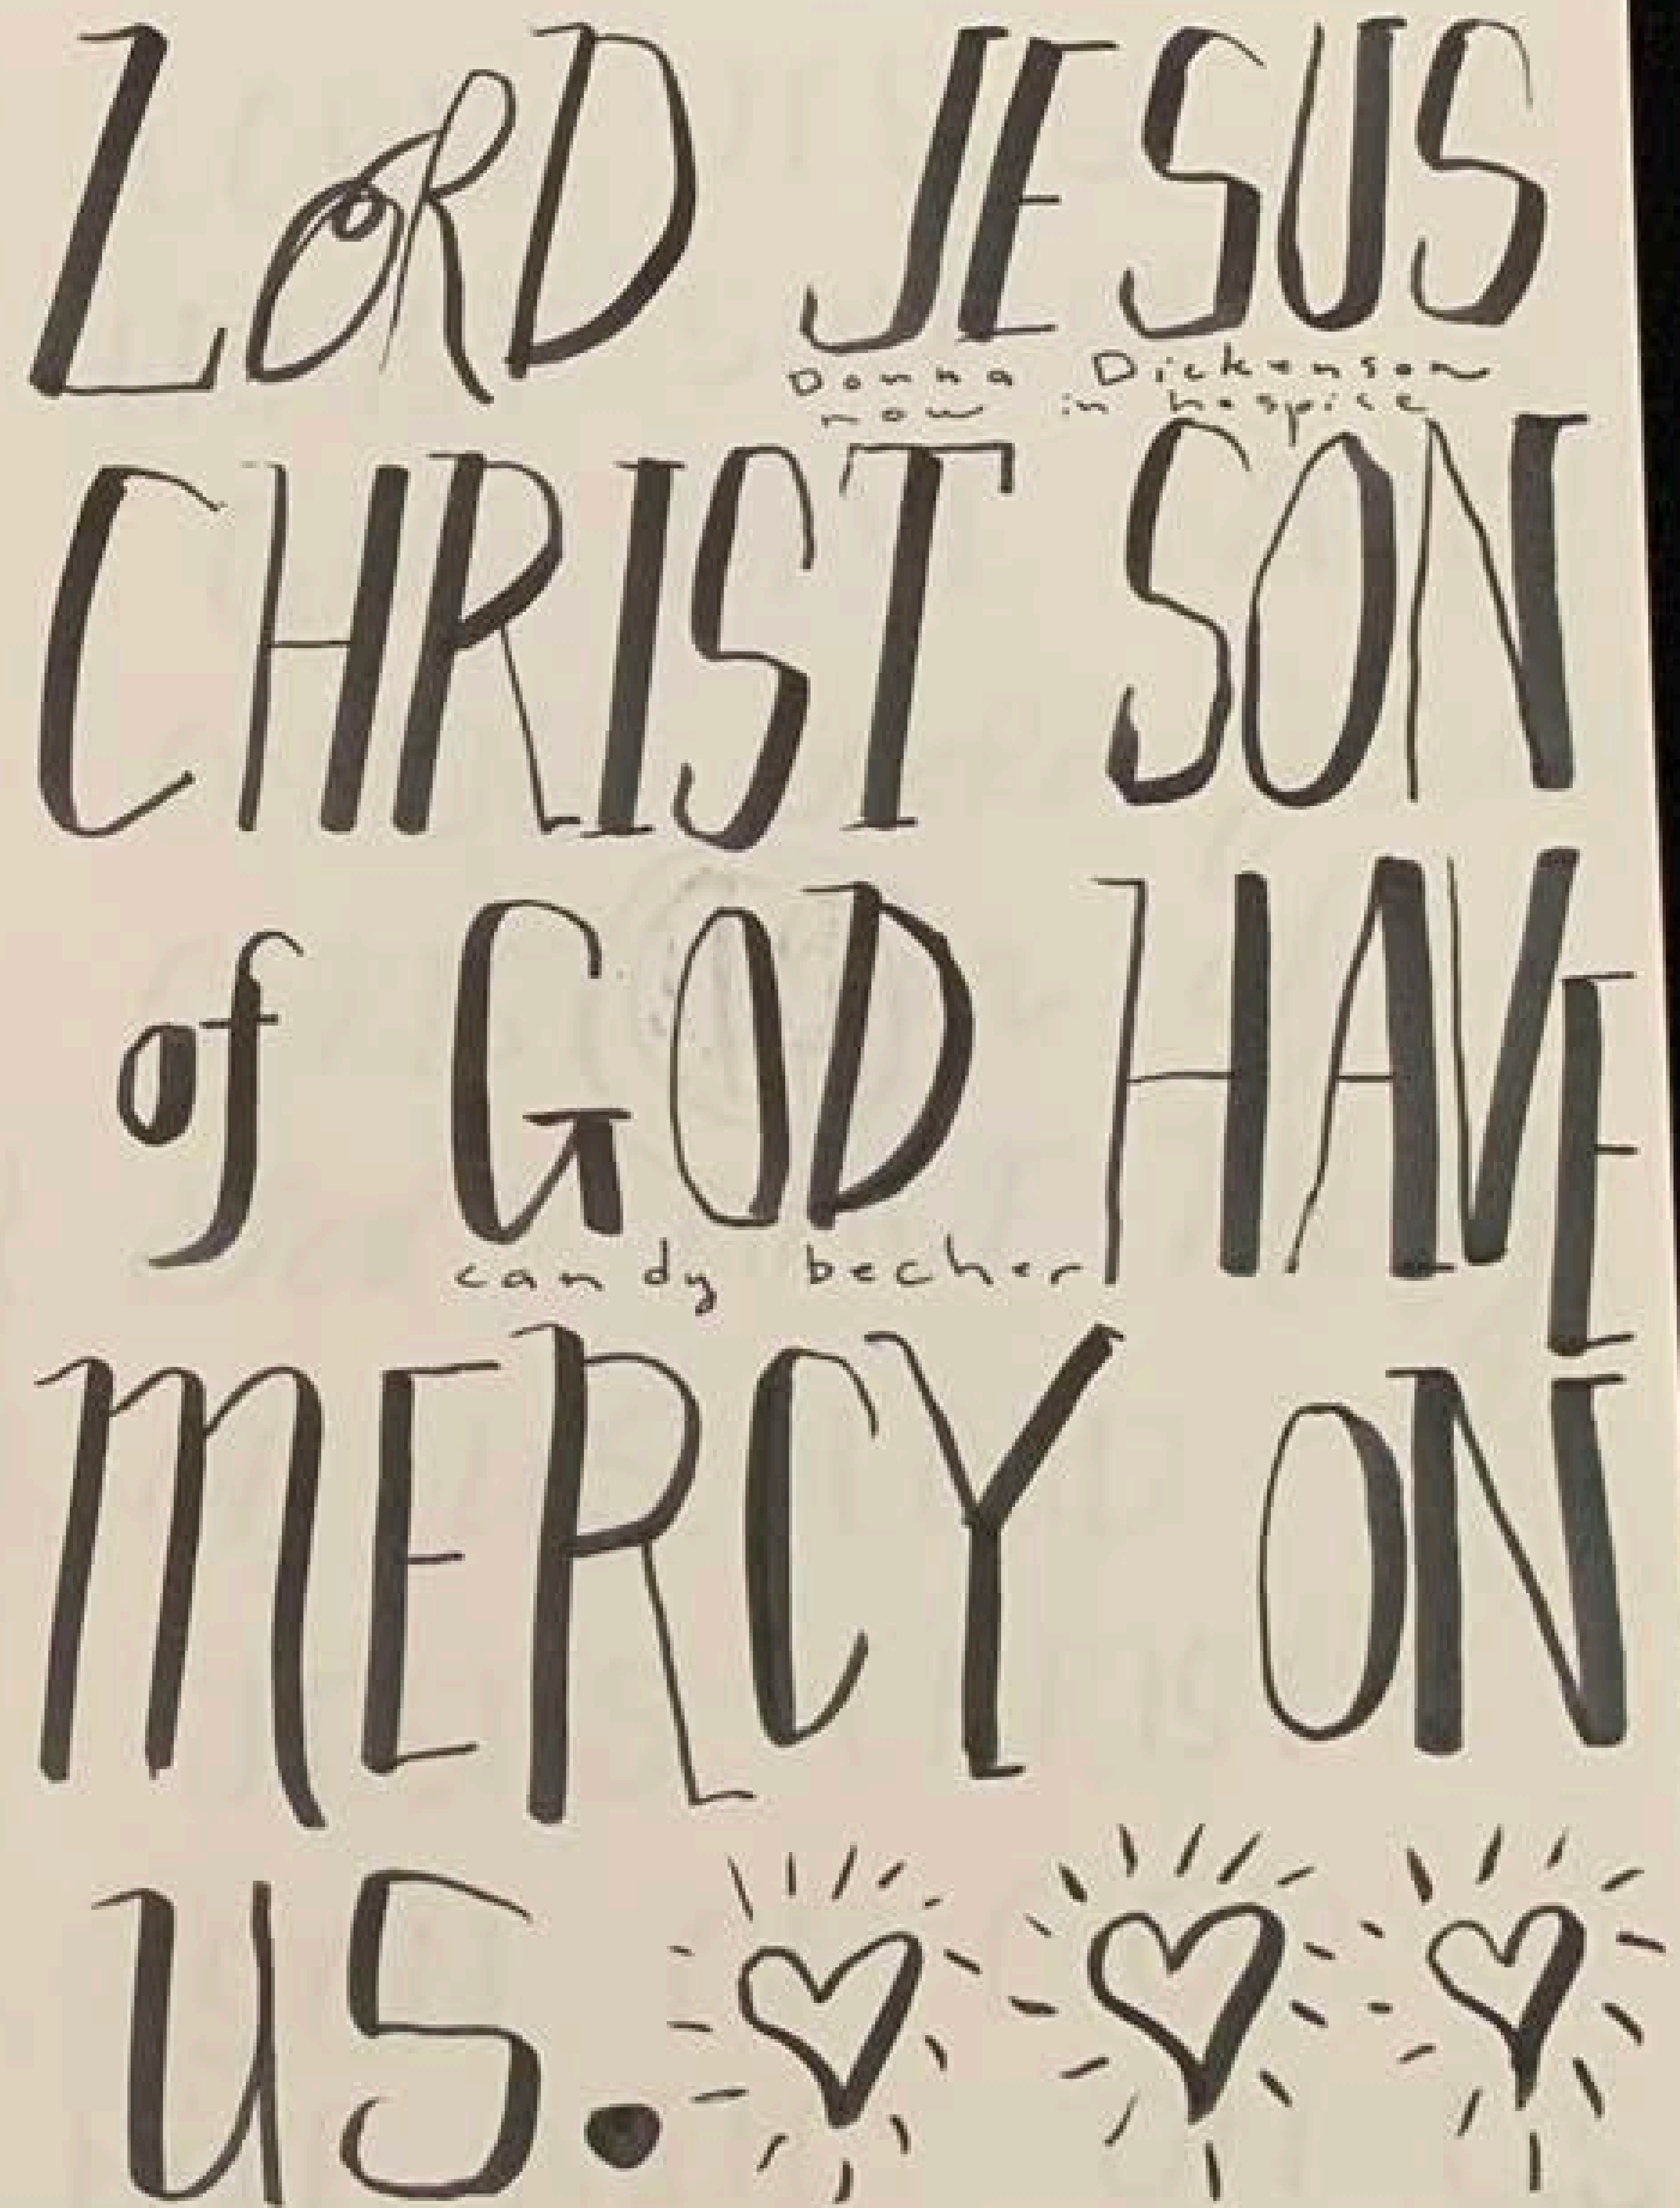 LORD JESUS
Donna Dickenson
now in hospice
CHRIST SON
of GOD HAVE
candy becher
MERCY ON
US.